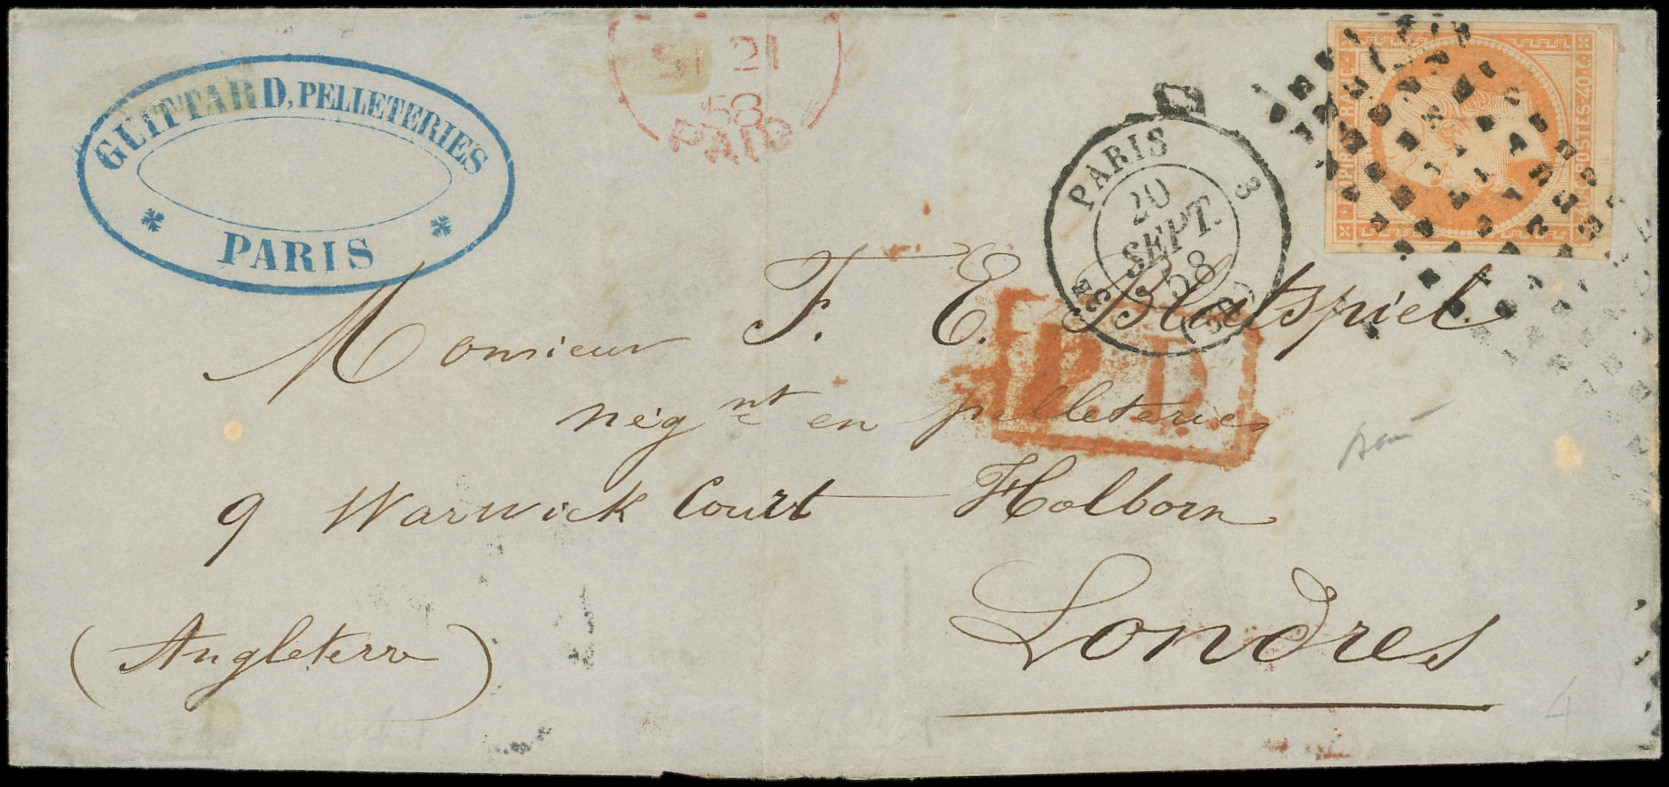 GUITTARD, PELLETERIES
PARIS
SP 21
58
PAID
PARIS
3
20
SEPT.
58
3E
(60)
POSTES 40.C.
P.D.
Monsieur F. E. Blatspiel
nég nt en pelleteries
9 Warwick Court Holborn
Londres
(Angleterre)
4